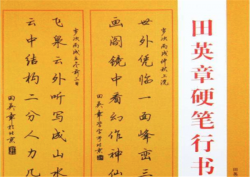 田英章硬笔行书
世外凭临一面峰峦三
画阁镜中看幻作神仙
飞泉云外听写成山水
云中结构二分人力八
田英章书于北京